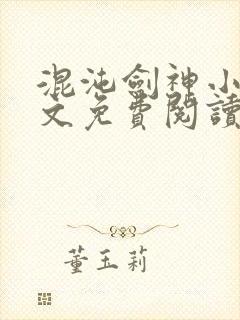 混沌劍神小
文免費閱讀
董玉莉